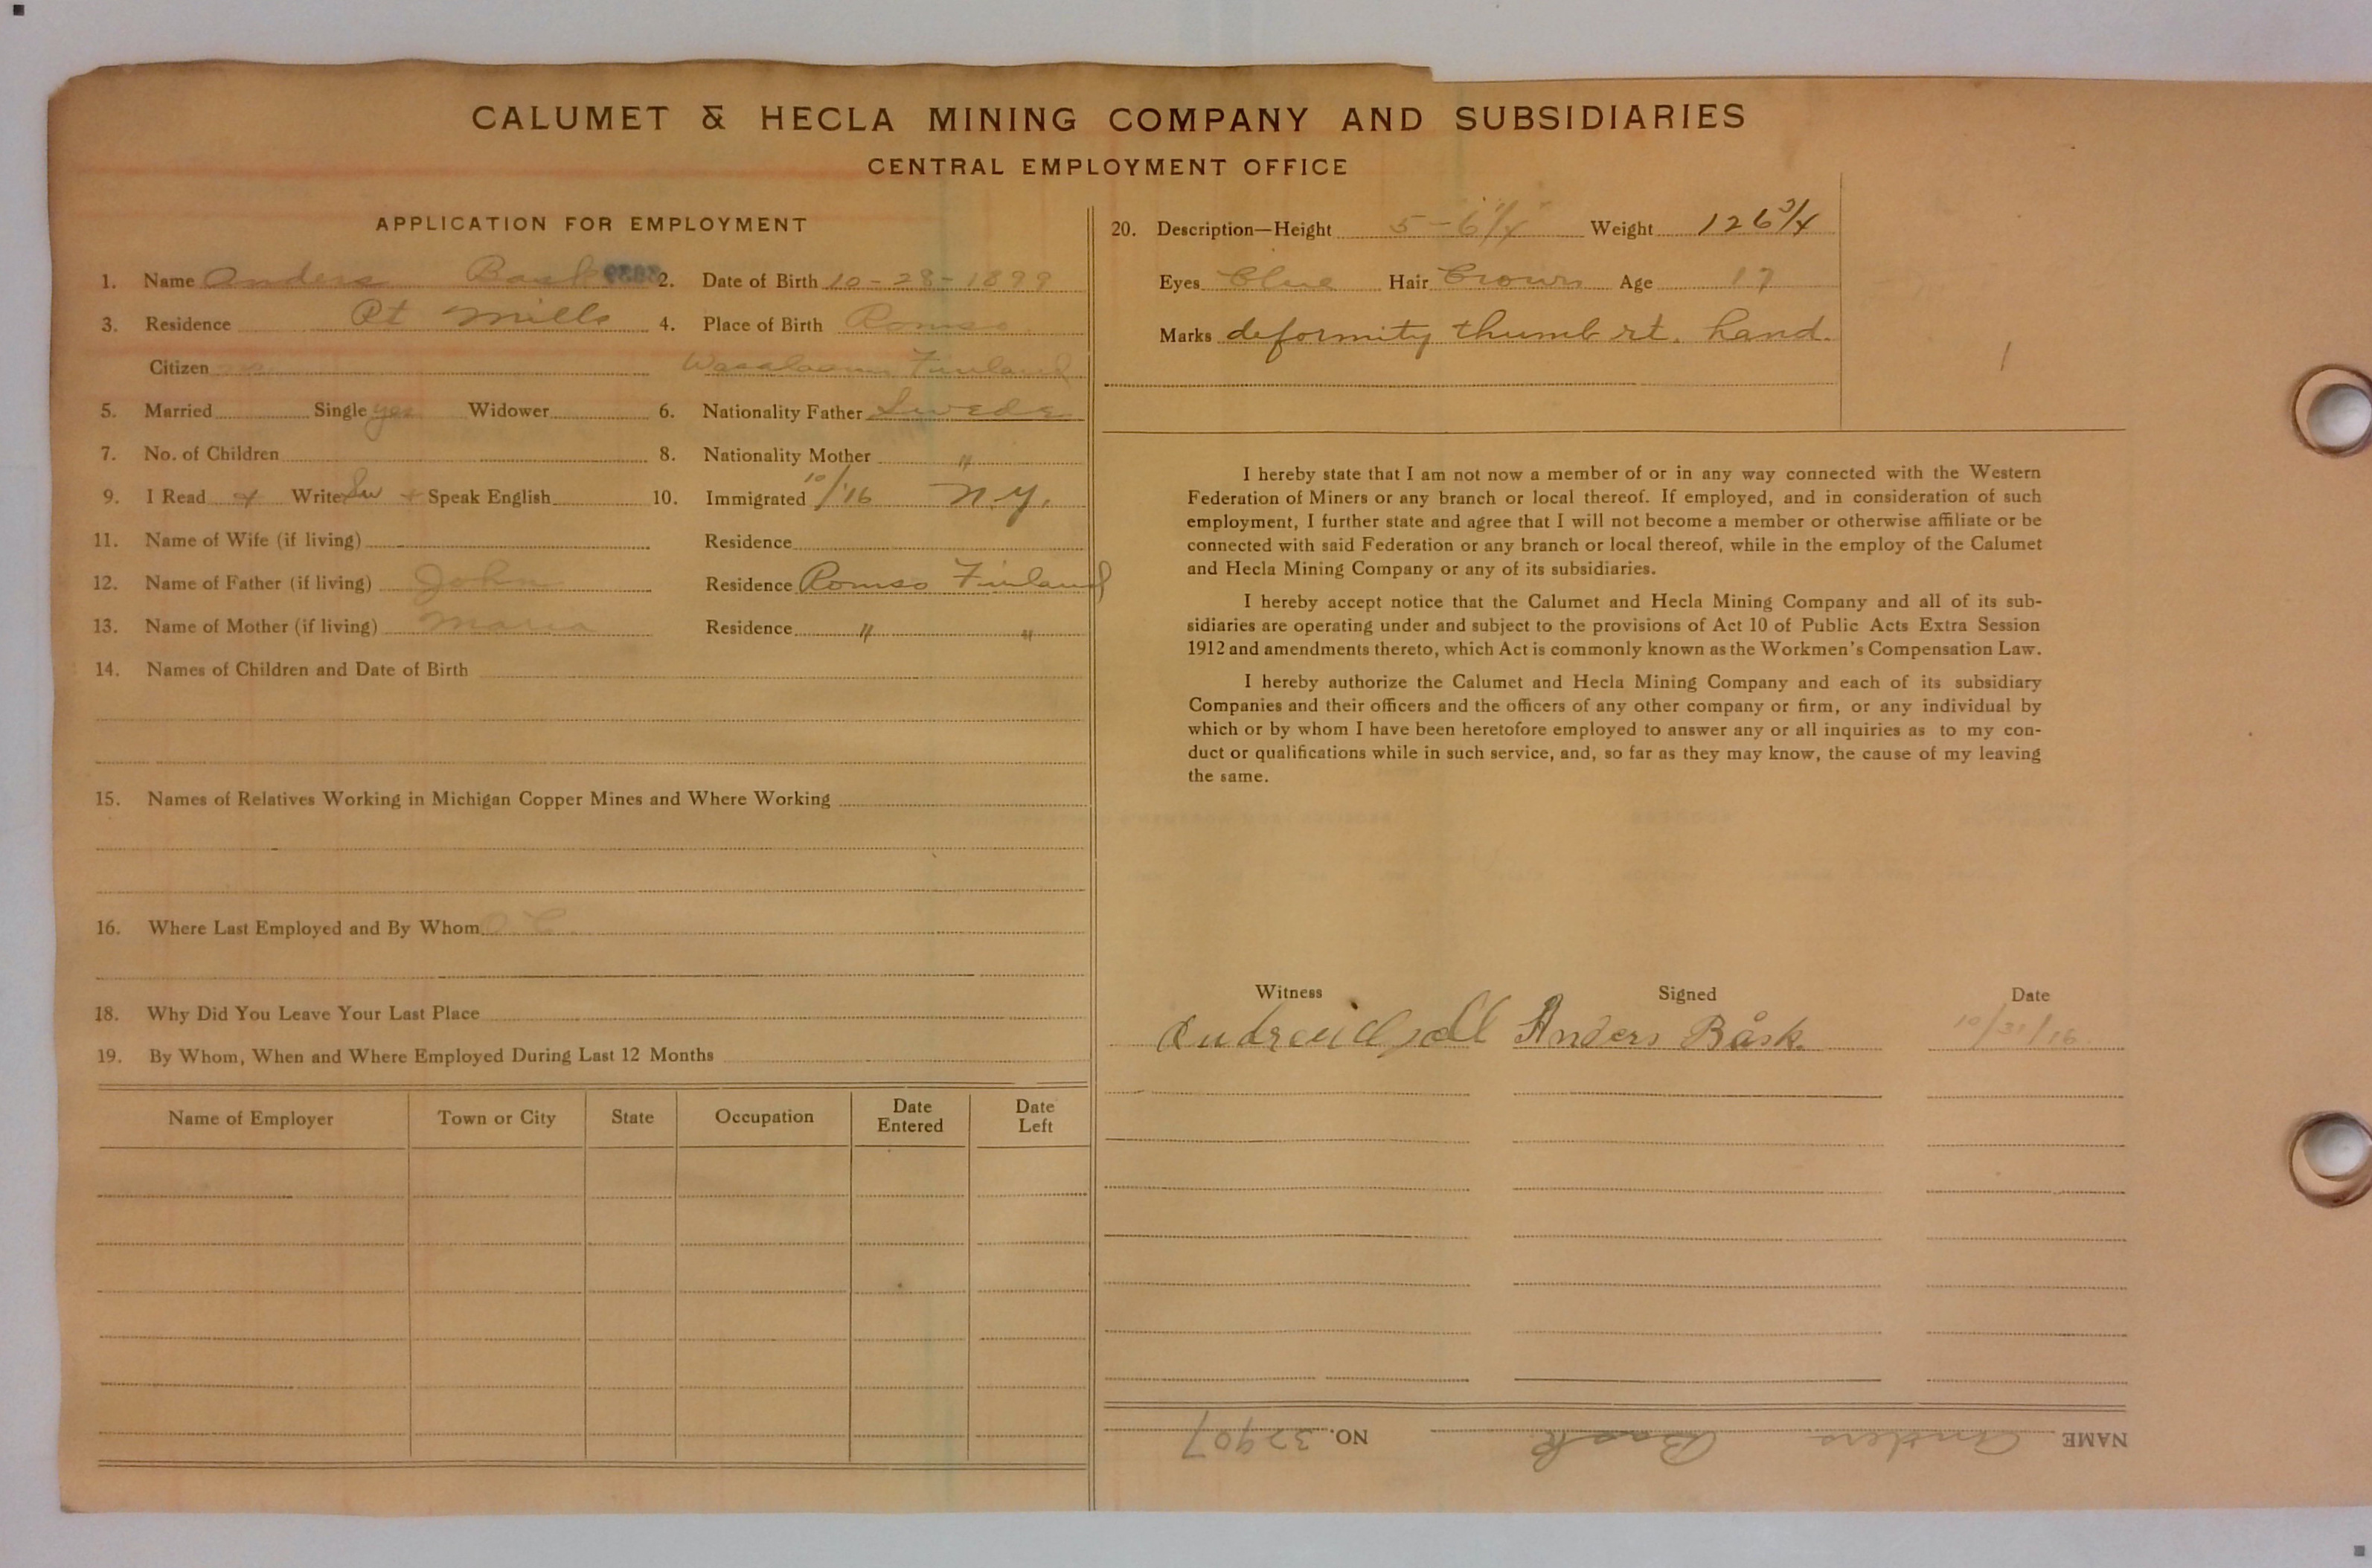 CALUMET & HECLA MINING COMPANY AND SUBSIDIARIES
CENTRAL EMPLOYMENT OFFICE
APPLICATION FOR EMPLOYMENT
1. Name Anders Bask 2. Date of Birth 10-28-1899
3. Residence Pt Mills 4. Place of Birth Romso
Citizen Finland
5. Married Single yes Widower 6. Nationality Father Swede
7. No. of Children 8. Nationality Mother "
9. I Read + Write Sw + Speak English 10. Immigrated 10/'16 N.Y.
11. Name of Wife (if living) Residence
12. Name of Father (if living) John Residence Romso Finland
13. Name of Mother (if living) Maria Residence " "
14. Names of Children and Date of Birth
15. Names of Relatives Working in Michigan Copper Mines and Where Working
16. Where Last Employed and By Whom
18. Why Did You Leave Your Last Place
19. By Whom, When and Where Employed During Last 12 Months
Name of Employer Town or City State Occupation Date Entered Date Left
20. Description—Height 5-6 1/4" Weight 126 3/4
Eyes Blue Hair Brown Age 17
Marks deformity thumb rt. hand.
I hereby state that I am not now a member of or in any way connected with the Western
Federation of Miners or any branch or local thereof. If employed, and in consideration of such
employment, I further state and agree that I will not become a member or otherwise affiliate or be
connected with said Federation or any branch or local thereof, while in the employ of the Calumet
and Hecla Mining Company or any of its subsidiaries.
I hereby accept notice that the Calumet and Hecla Mining Company and all of its sub-
sidiaries are operating under and subject to the provisions of Act 10 of Public Acts Extra Session
1912 and amendments thereto, which Act is commonly known as the Workmen's Compensation Law.
I hereby authorize the Calumet and Hecla Mining Company and each of its subsidiary
Companies and their officers and the officers of any other company or firm, or any individual by
which or by whom I have been heretofore employed to answer any or all inquiries as to my con-
duct or qualifications while in such service, and, so far as they may know, the cause of my leaving
the same.
Witness Signed Date
Anders Båsk. 10/31/16.
NAME Anders Bask NO. 32907